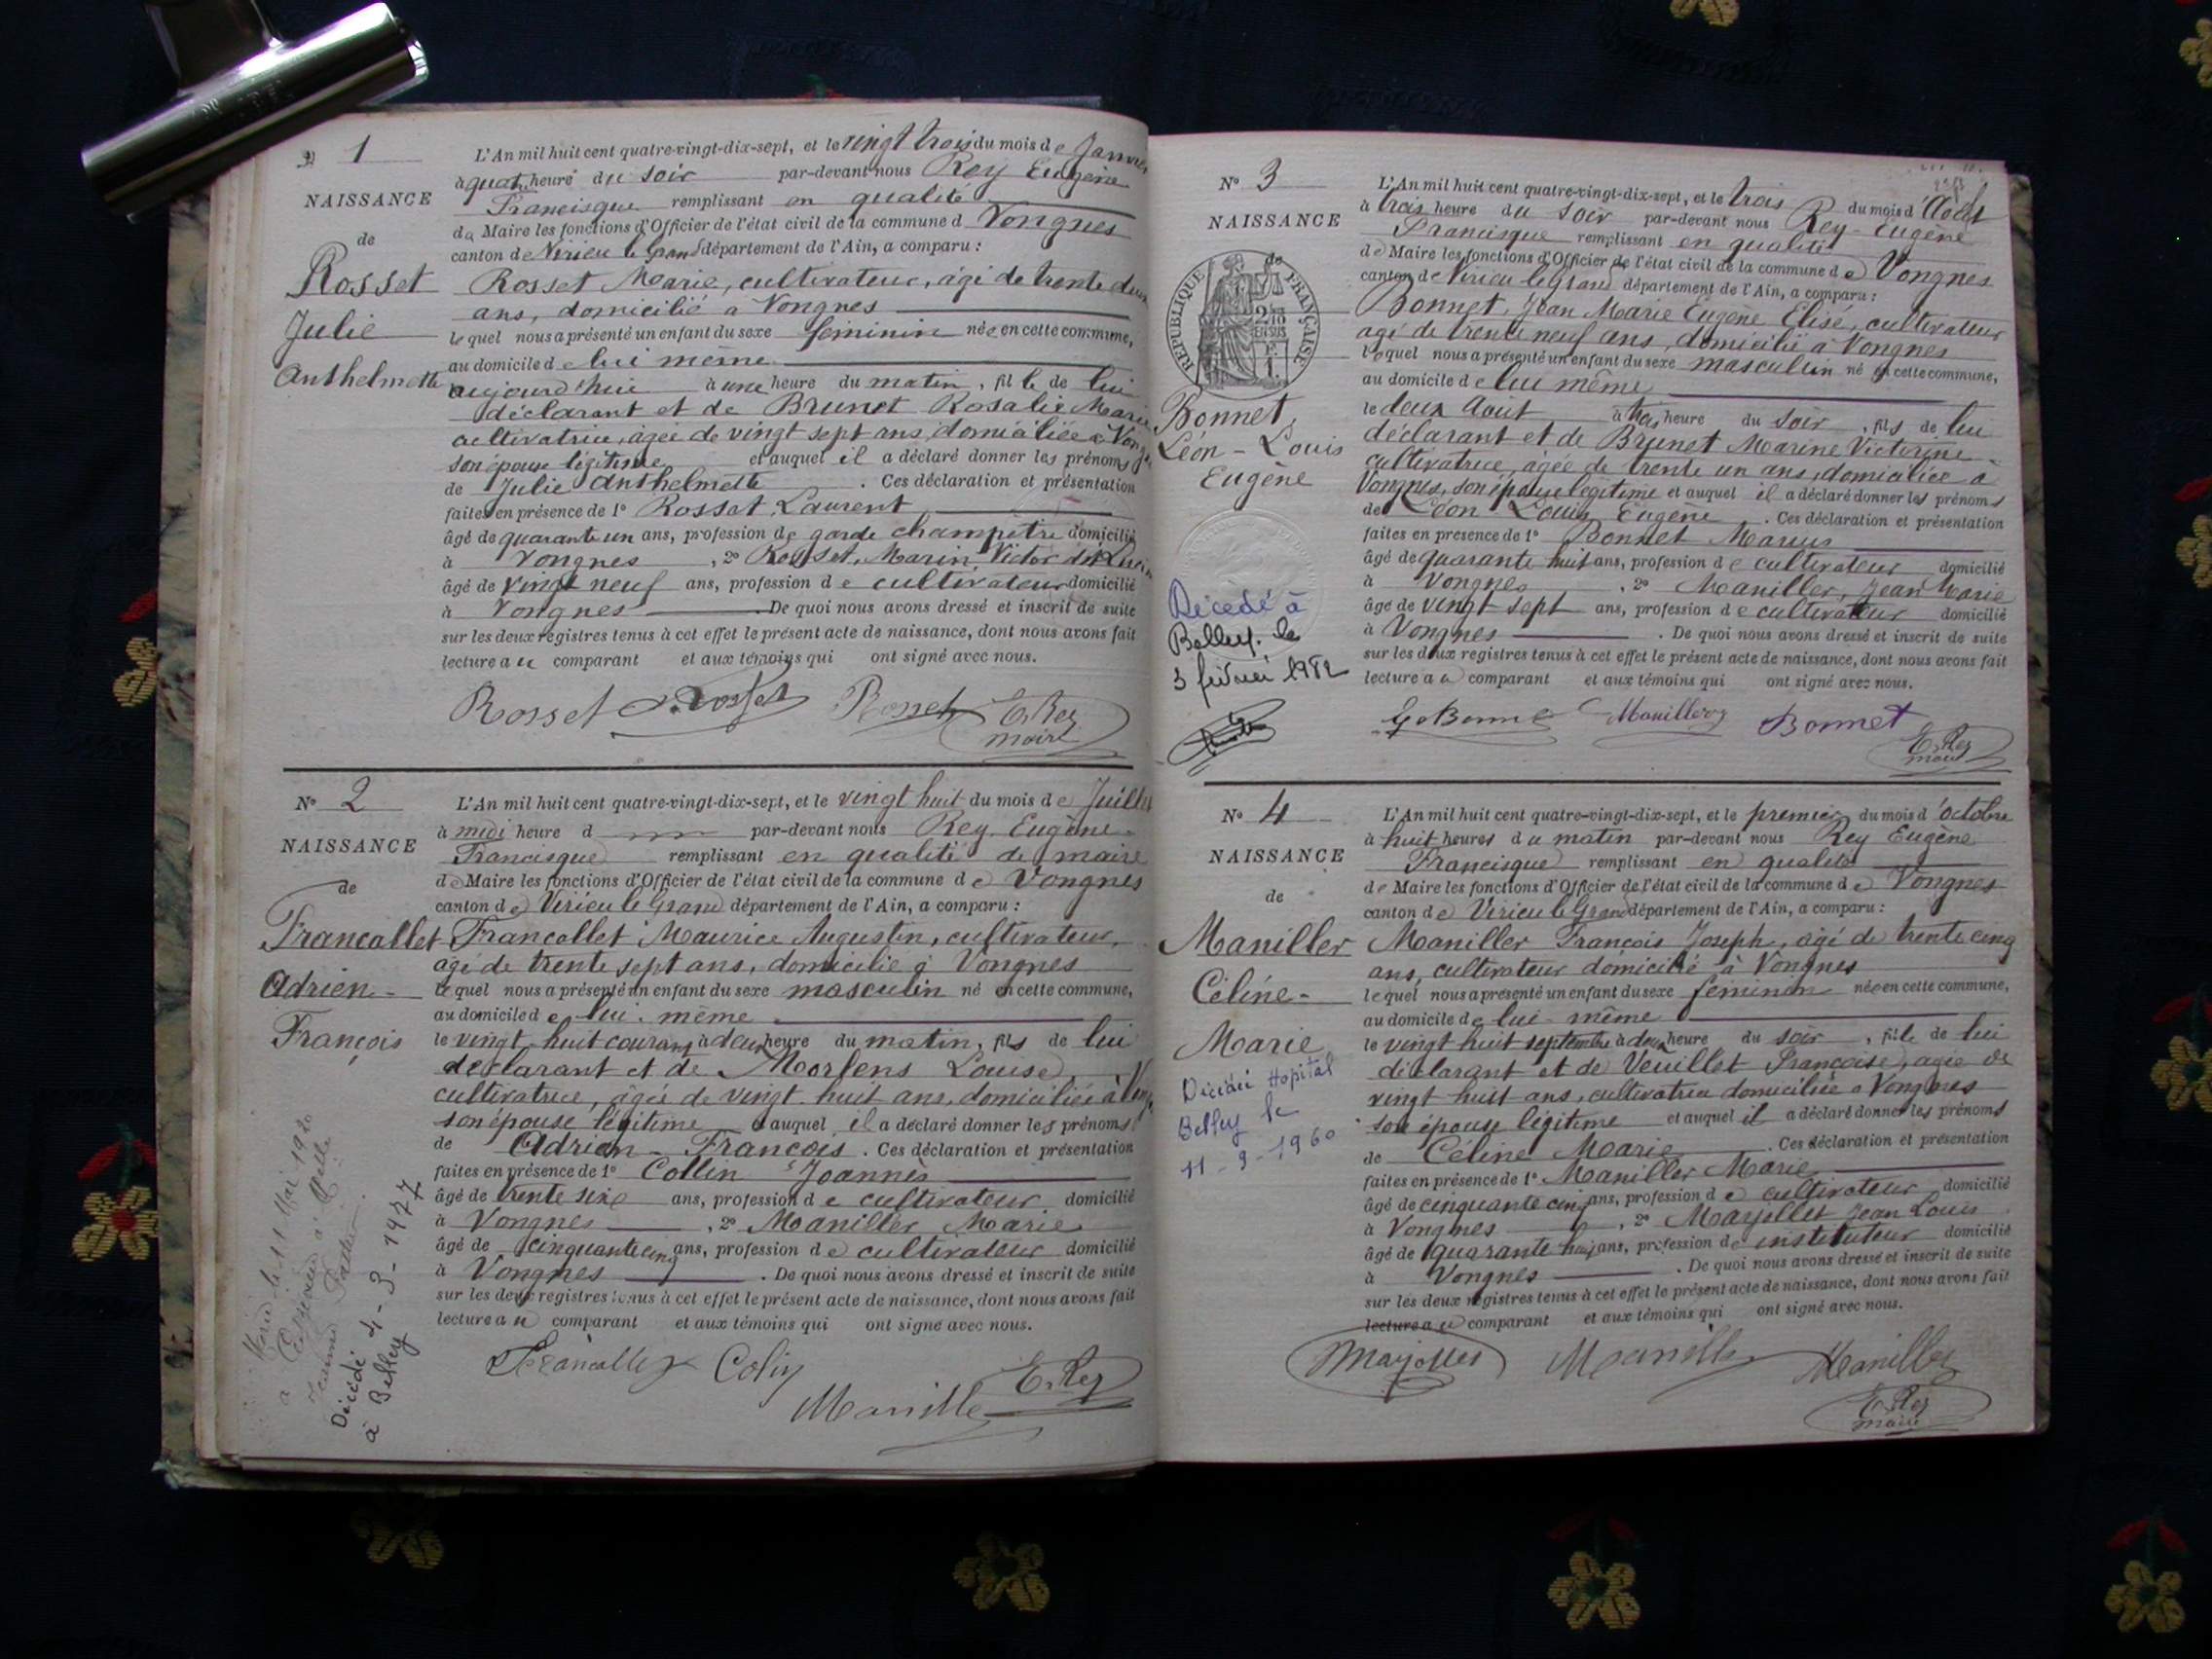 1
NAISSANCE
de
Rosset
Julie
Anthelmette
L'An mil huit cent quatre-vingt-dix-sept, et le vingt trois du mois de Janvier
à quatre heure du soir par-devant nous Rey Eugène
Francisque remplissant en qualité
de Maire les fonctions d'Officier de l'état civil de la commune d Vongnes
canton de Virieu le Grand département de l'Ain, a comparu :
Rosset Marie, cultivateur, âgé de trente deux
ans, domicilié à Vongnes
lequel nous a présenté un enfant du sexe féminin née en cette commune,
au domicile de lui même
aujourd'hui à une heure du matin, fille de lui
déclarant et de Brunet Rosalie Marie
cultivatrice, âgée de vingt sept ans, domiciliée à Vongnes
son épouse légitime et auquel il a déclaré donner les prénoms
de Julie Anthelmette . Ces déclaration et présentation
faites en présence de 1° Rosset Laurent
âgé de quarante un ans, profession de garde champêtre domicilié
à Vongnes , 2° Rosset, Marin Victor
âgé de vingt neuf ans, profession de cultivateur domicilié
à Vongnes . De quoi nous avons dressé et inscrit de suite
sur les deux registres tenus à cet effet le présent acte de naissance, dont nous avons fait
lecture au comparant et aux témoins qui ont signé avec nous.
Rosset Rosset Rosset E. Rey
maire
N° 2
NAISSANCE
de
Francallet
Adrien-
François
L'An mil huit cent quatre-vingt-dix-sept, et le vingt huit du mois de Juillet
à midi heure d par-devant nous Rey Eugène
Francisque remplissant en qualité de maire
de Maire les fonctions d'Officier de l'état civil de la commune de Vongnes
canton de Virieu le Grand département de l'Ain, a comparu :
Francallet Maurice Augustin, cultivateur,
âgé de trente sept ans, domicilié à Vongnes
lequel nous a présenté un enfant du sexe masculin né en cette commune,
au domicile de lui même
le vingt huit courant à deux heure du matin, fils de lui
déclarant et de Morlens Louise,
cultivatrice, âgée de vingt huit ans, domiciliée à
son épouse légitime auquel il a déclaré donner les prénoms
de Adrien - François . Ces déclaration et présentation
faites en présence de 1° Collin Joannès
âgé de trente six ans, profession de cultivateur domicilié
à Vongnes , 2° Maniller Marie
âgé de cinquante cinq ans, profession de cultivateur domicilié
à Vongnes . De quoi nous avons dressé et inscrit de suite
sur les deux registres tenus à cet effet le présent acte de naissance, dont nous avons fait
lecture au comparant et aux témoins qui ont signé avec nous.
Francallet Colin
Maniller E. Rey
Marié le 11 Mai 1920
à
Décédé 4-3-1977
à Belley
N° 3
NAISSANCE
de
RÉPUBLIQUE FRANÇAISE
2/10
EN SUS
F.
1.
Bonnet,
Léon - Louis
Eugène
Décédé à
Belley. le
3 février 1982
L'An mil huit cent quatre-vingt-dix-sept, et le trois du mois d'Août
à trois heure du soir par-devant nous Rey - Eugène
Francisque remplissant en qualité
de Maire les fonctions d'Officier de l'état civil de la commune de Vongnes
canton de Virieu le Grand département de l'Ain, a comparu :
Bonnet, Jean Marie Eugène Elisé, cultivateur
âgé de trente neuf ans, domicilié à Vongnes
lequel nous a présenté un enfant du sexe masculin né en cette commune,
au domicile de lui même
le deux Août à trois heure du soir , fils de lui
déclarant et de Brunet Marine Victorine
cultivatrice, âgée de trente un ans, domiciliée à
Vongnes, son épouse légitime et auquel il a déclaré donner les prénoms
de Léon Louis Eugène . Ces déclaration et présentation
faites en présence de 1° Bonnet Marius
âgé de quarante huit ans, profession de cultivateur domicilié
à Vongnes , 2° Maniller, Jean Marie
âgé de vingt sept ans, profession de cultivateur domicilié
à Vongnes . De quoi nous avons dressé et inscrit de suite
sur les deux registres tenus à cet effet le présent acte de naissance, dont nous avons fait
lecture au comparant et aux témoins qui ont signé avec nous.
Bonnet
E. Rey
maire
N° 4
NAISSANCE
de
Maniller
Céline-
Marie
Décédée Hopital
Belley le
11-9-1960
L'An mil huit cent quatre-vingt-dix-sept, et le premier du mois d'octobre
à huit heures du matin par-devant nous Rey Eugène
Francisque remplissant en qualité
de Maire les fonctions d'Officier de l'état civil de la commune de Vongnes
canton de Virieu le Grand département de l'Ain, a comparu :
Maniller François Joseph, âgé de trente cinq
ans, cultivateur domicilié à Vongnes
lequel nous a présenté un enfant du sexe féminin née en cette commune,
au domicile de lui - même
le vingt huit septembre à deux heure du soir , fille de lui
déclarant et de Veuillet Françoise, âgée de
vingt huit ans, cultivatrice domiciliée à Vongnes
son épouse légitime et auquel il a déclaré donner les prénoms
de Céline Marie . Ces déclaration et présentation
faites en présence de 1° Maniller Marie
âgé de cinquante cinq ans, profession de cultivateur domicilié
à Vongnes , 2° Marjollet Jean Louis
âgé de quarante huit ans, profession de instituteur domicilié
à Vongnes . De quoi nous avons dressé et inscrit de suite
sur les deux registres tenus à cet effet le présent acte de naissance, dont nous avons fait
lecture au comparant et aux témoins qui ont signé avec nous.
Marjollet Maniller Maniller
E. Rey
maire